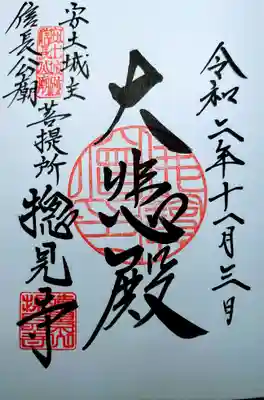 令和六年十一月三日
大悲殿
安土城主
信長公廟
菩提所
摠見寺